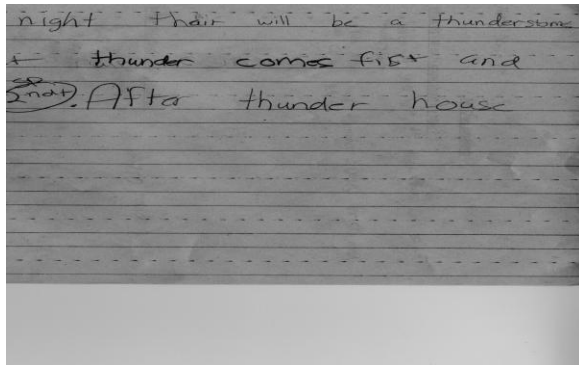 night thair will be a thunderstome
thunder comes fist and
sp
2nd. Afta thunder house